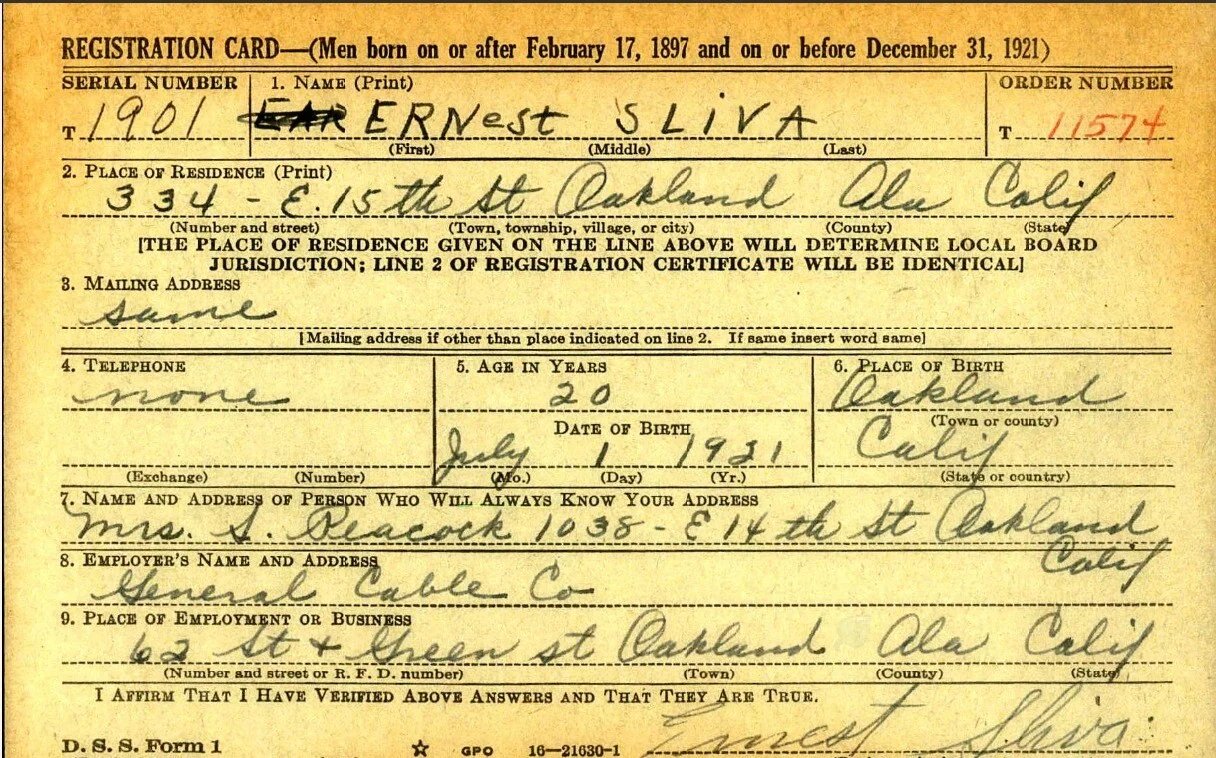 REGISTRATION CARD—(Men born on or after February 17, 1897 and on or before December 31, 1921)
SERIAL NUMBER 1. NAME (Print) ORDER NUMBER
T 1901 EAR ERNest SLiVA T 11574
(First) (Middle) (Last)
2. PLACE OF RESIDENCE (Print)
334 - E. 15th St Oakland Ala Calif
(Number and street) (Town, township, village, or city) (County) (State)
[THE PLACE OF RESIDENCE GIVEN ON THE LINE ABOVE WILL DETERMINE LOCAL BOARD
JURISDICTION; LINE 2 OF REGISTRATION CERTIFICATE WILL BE IDENTICAL]
3. MAILING ADDRESS
same
[Mailing address if other than place indicated on line 2. If same insert word same]
4. TELEPHONE 5. AGE IN YEARS 6. PLACE OF BIRTH
none 20 Oakland
DATE OF BIRTH (Town or county)
July 1 1921 Calif
(Exchange) (Number) (Mo.) (Day) (Yr.) (State or country)
7. NAME AND ADDRESS OF PERSON WHO WILL ALWAYS KNOW YOUR ADDRESS
Mrs. S. Peacock 1038 - E 14th St Oakland
Calif
8. EMPLOYER'S NAME AND ADDRESS
General Cable Co
9. PLACE OF EMPLOYMENT OR BUSINESS
62 St + Green st Oakland Ala Calif
(Number and street or R. F. D. number) (Town) (County) (State)
I AFFIRM THAT I HAVE VERIFIED ABOVE ANSWERS AND THAT THEY ARE TRUE.
D. S. S. Form 1 GPO 16—21630-1 Ernest Sliva